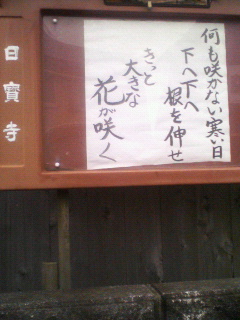 何も咲かない寒い日
下へ下へ
根を伸せ
きっと
大きな
花が咲く
日寶寺